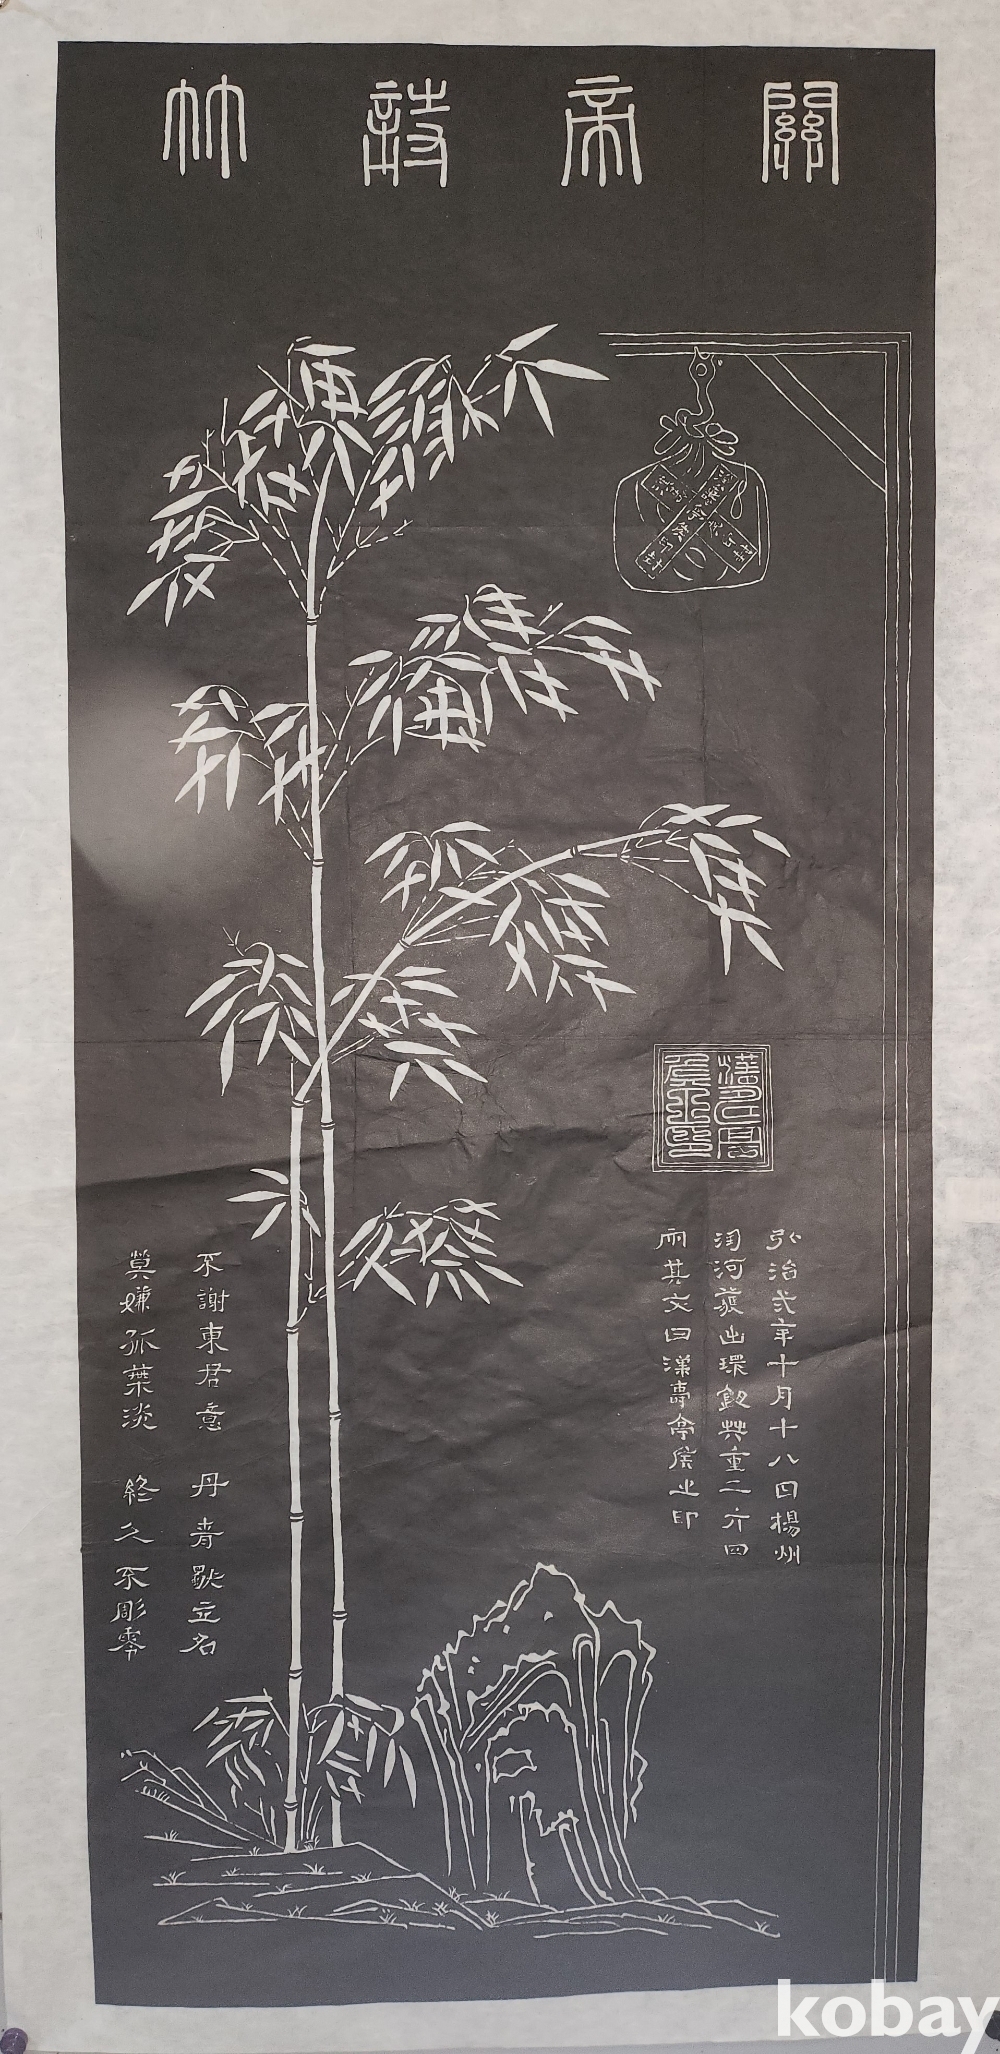 關帝詩竹
漢壽亭
侯之印
弘治弍年十月十八日楊州
淘河獲出環鈕共重二斤四
兩其文曰漢壽亭侯之印
不謝東君意 丹青獨立名
莫嫌孤葉淡 終久不彫零
kobay